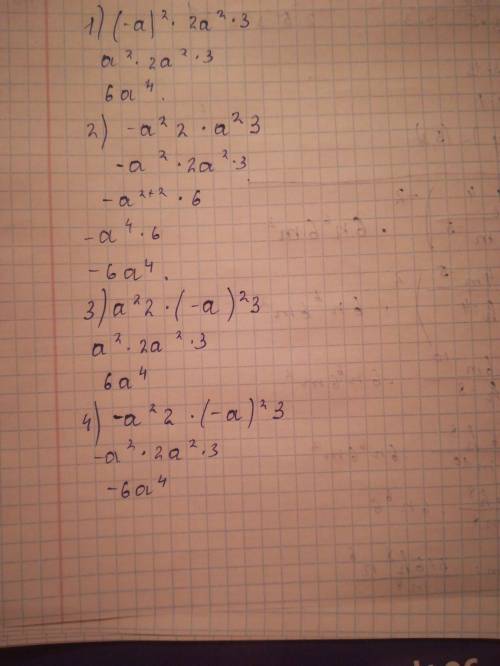 1) (-a)² · 2a² · 3
a² · 2a² · 3
6a⁴.
2) -a² 2 · a² 3
-a² · 2a² · 3
-a²⁺² · 6
-a⁴ · 6
-6a⁴.
3) a² 2 · (-a)² 3
a² · 2a² · 3
6a⁴
4) -a² 2 · (-a)² 3
-a² · 2a² · 3
-6a⁴